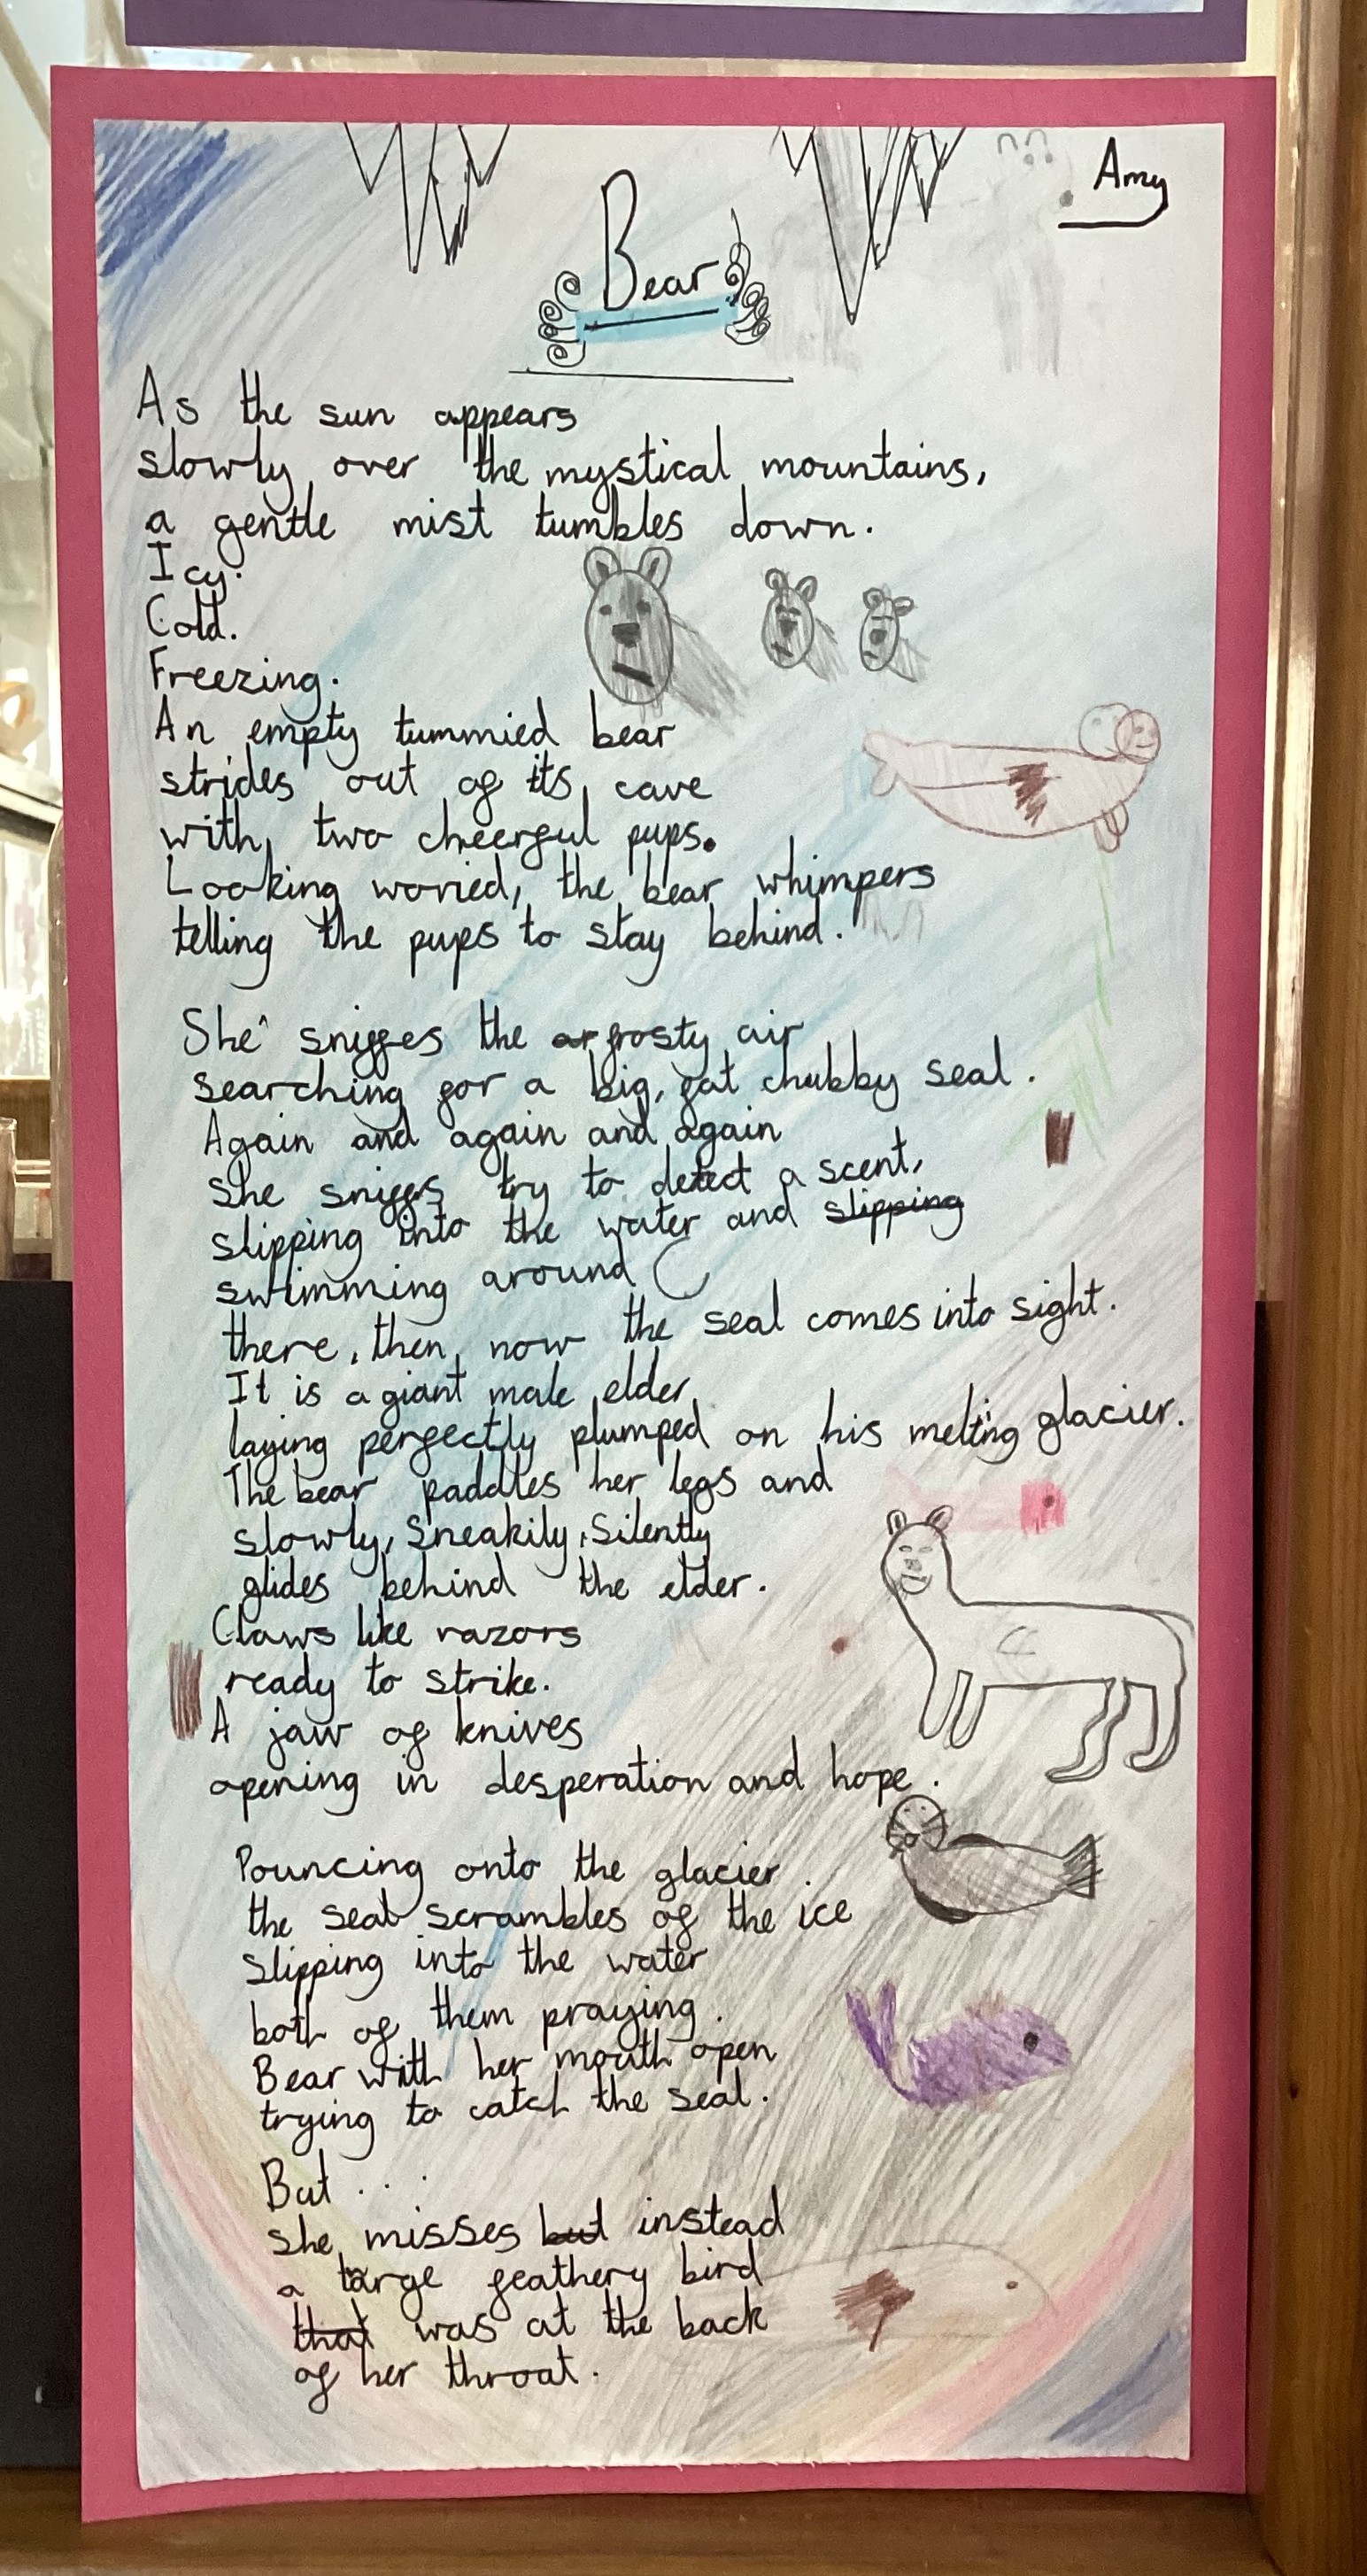 Amy
Bear
As the sun appears
slowly over the mystical mountains,
a gentle mist tumbles down.
Icy.
Cold.
Freezing.
An empty tummied bear
strides out of its cave
with two cheerful pups.
Looking woried, the bear whimpers
telling the pups to stay behind.
She sniffes the ar frosty air
searching for a big, fat chubby seal.
Again and again and again
she sniffs try to detect a scent,
slipping into the water and slipping
swimming around
there, then, now the seal comes into sight.
It is a giant male elder
laying perfectly plumped on his melting glacier.
The bear paddles her legs and
slowly, Sneakily, Silently
glides behind the elder.
Claws like razors
ready to strike.
A jaw of knives
opening in desperation and hope.
Pouncing onto the glacier.
the seal scrambles of the ice
slipping into the water
both of them praying.
Bear with her mouth open
trying to catch the seal.
But . . .
she misses but instead
a large feathery bird
that was at the back
of her throat.